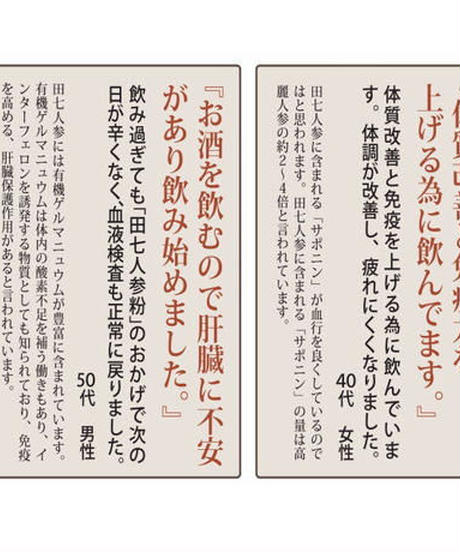 上げる為に飲んでます。』
体質改善と免疫を上げる為に飲んでいま
す。体調が改善し、疲れにくくなりました。
40代　女性
田七人参に含まれる「サポニン」が血行を良くしているので
はと思われます。田七人参に含まれる「サポニン」の量は高
麗人参の約2～4倍と言われています。
『お酒を飲むので肝臓に不安
があり飲み始めました。』
飲み過ぎても「田七人参粉」のおかげで次の
日が辛くなく、血液検査も正常に戻りました。
50代　男性
田七人参には有機ゲルマニュウムが豊富に含まれています。
有機ゲルマニュウムは体内の酸素不足を補う働きもあり、イ
ンターフェロンを誘発する物質としても知られており、免疫
を高める、肝臓保護作用があると言われています。